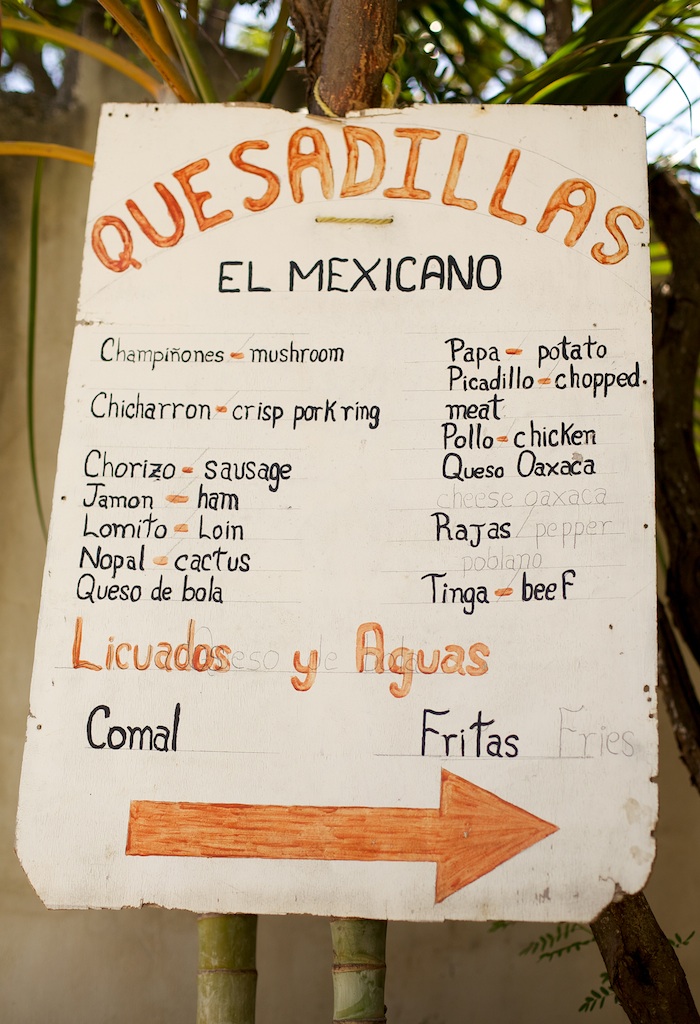 QUESADILLAS
EL MEXICANO
Champiñones - mushroom
Chicharron - crisp pork ring
Chorizo - sausage
Jamon - ham
Lomito - Loin
Nopal - cactus
Queso de bola
Papa - potato
Picadillo - chopped.
meat
Pollo - chicken
Queso Oaxaca
cheese oaxaca
Rajas / pepper
poblano
Tinga - beef
Licuados y Aguas
Queso de bola
Comal
Fritas Fries